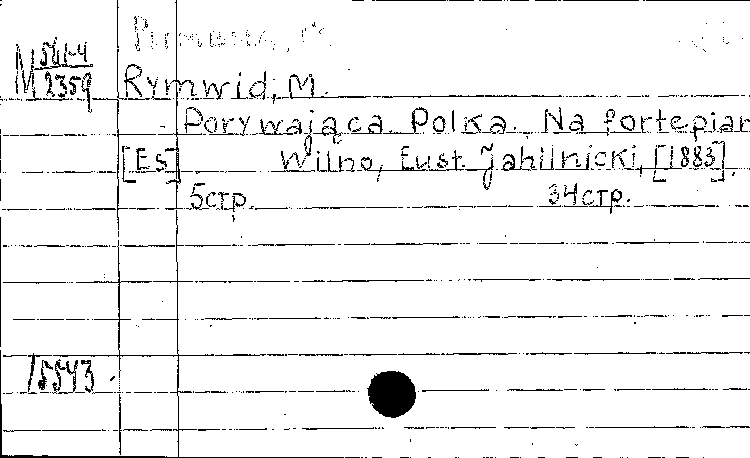 М 561-4
2359
Rymwid, M.
Porywająca. Polka. Na fortepian
[Es] Wilno, Eust. Jahilnicki, [1883].
5стр. 34стр.
15543